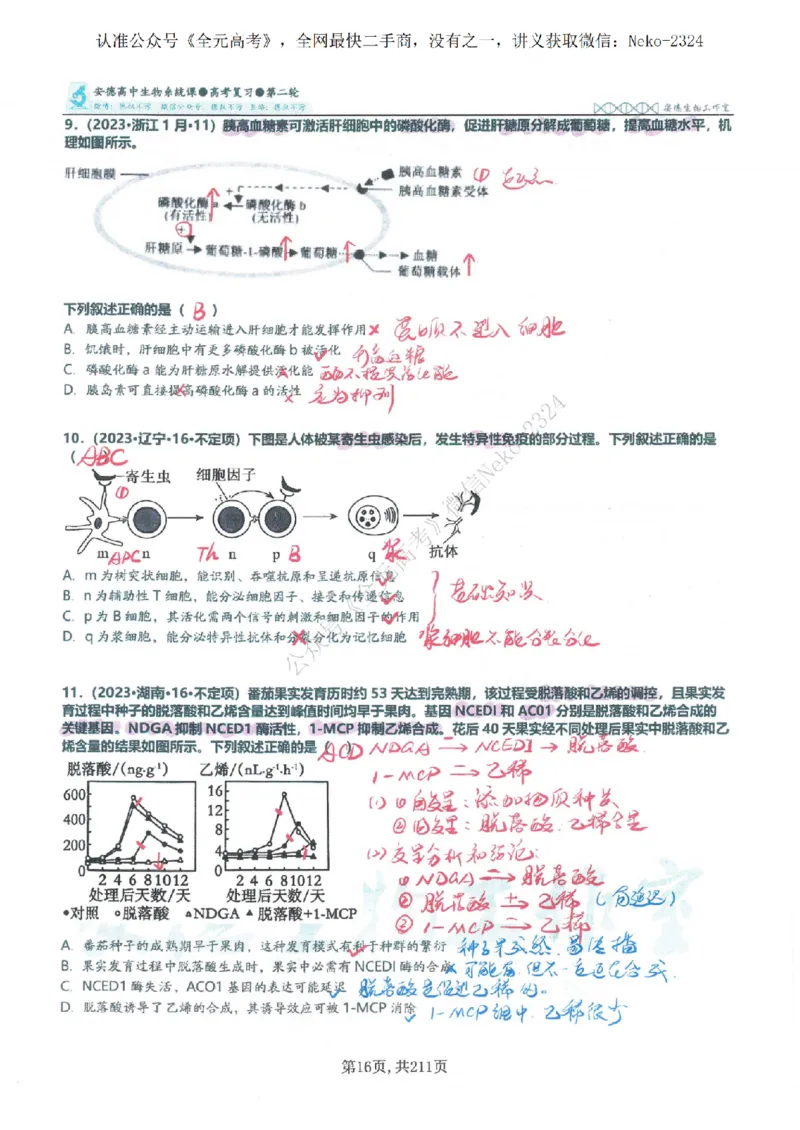 认准公众号《全元高考》，全网最快二手商，没有之一，讲义获取微信：Neko-2324
安德高中生物系统课●高考复习●第二轮
安德生物工作室
9.（2023·浙江1月·11）胰高血糖素可激活肝细胞中的磷酸化酶，促进肝糖原分解成葡萄糖，提高血糖水平，机
理如图所示。
肝细胞膜
胰高血糖素 ①
胰高血糖素受体
磷酸化酶a
(有活性)
磷酸化酶b
(无活性)
+
肝糖原 葡萄糖-1-磷酸 葡萄糖 血糖
葡萄糖载体
下列叙述正确的是（ B ）
A. 胰高血糖素经主动运输进入肝细胞才能发挥作用× 蛋白质不进入细胞
B. 饥饿时，肝细胞中有更多磷酸化酶b被活化 胰高血糖
C. 磷酸化酶a能为肝糖原水解提供活化能 酶不提供活化能
D. 胰岛素可直接提高磷酸化酶a的活性 × 应为抑制
10.（2023·辽宁·16·不定项）下图是人体被某寄生虫感染后，发生特异性免疫的部分过程。下列叙述正确的是
（ ABC
寄生虫 细胞因子
①
m APC n Th n p B q 浆 抗体
A. m为树突状细胞，能识别、吞噬抗原和呈递抗原信息
B. n为辅助性T细胞，能分泌细胞因子、接受和传递信息 基础知识
C. p为B细胞，其活化需两个信号的刺激和细胞因子的作用
D. q为浆细胞，能分泌特异性抗体和分裂分化为记忆细胞 浆细胞不能分裂分化
公众号《全元高考》微信Neko-2324
11.（2023·湖南·16·不定项）番茄果实发育历时约53天达到完熟期，该过程受脱落酸和乙烯的调控，且果实发
育过程中种子的脱落酸和乙烯含量达到峰值时间均早于果肉。基因NCEDI和AC01分别是脱落酸和乙烯合成的
关键基因。NDGA抑制NCED1酶活性，1-MCP抑制乙烯合成。花后40天果实经不同处理后果实中脱落酸和乙
烯含量的结果如图所示。下列叙述正确的是（ACD） NDGA → NCEDI → 脱落酸
脱落酸/(ng·g⁻¹) 乙烯/(nL·g⁻¹·h⁻¹)
1-MCP → 乙稀
600
400
200
0
16
12
8
4
0
2 4 6 8 10 12
2 4 6 8 10 12
处理后天数/天 处理后天数/天
●对照 ○脱落酸 △NDGA ▲脱落酸+1-MCP
(1) ①自变量：添加物质种类
②因变量：脱落酸、乙稀含量
(2) 变量分析和结论：
① NDGA → 脱落酸
② 脱落酸 + 乙稀（向延迟）
② 1-MCP → 乙稀
A. 番茄种子的成熟期早于果肉，这种发育模式有利于种群的繁衍 种子果成熟、易传播
B. 果实发育过程中脱落酸生成时，果实中必需有NCEDI酶的合成× 可能有，但不一定正在合成.
C. NCED1酶失活，ACO1基因的表达可能延迟 脱落酸是促进乙稀的。
D. 脱落酸诱导了乙烯的合成，其诱导效应可被1-MCP消除 1-MCP组中.乙稀很少
第16页,共211页